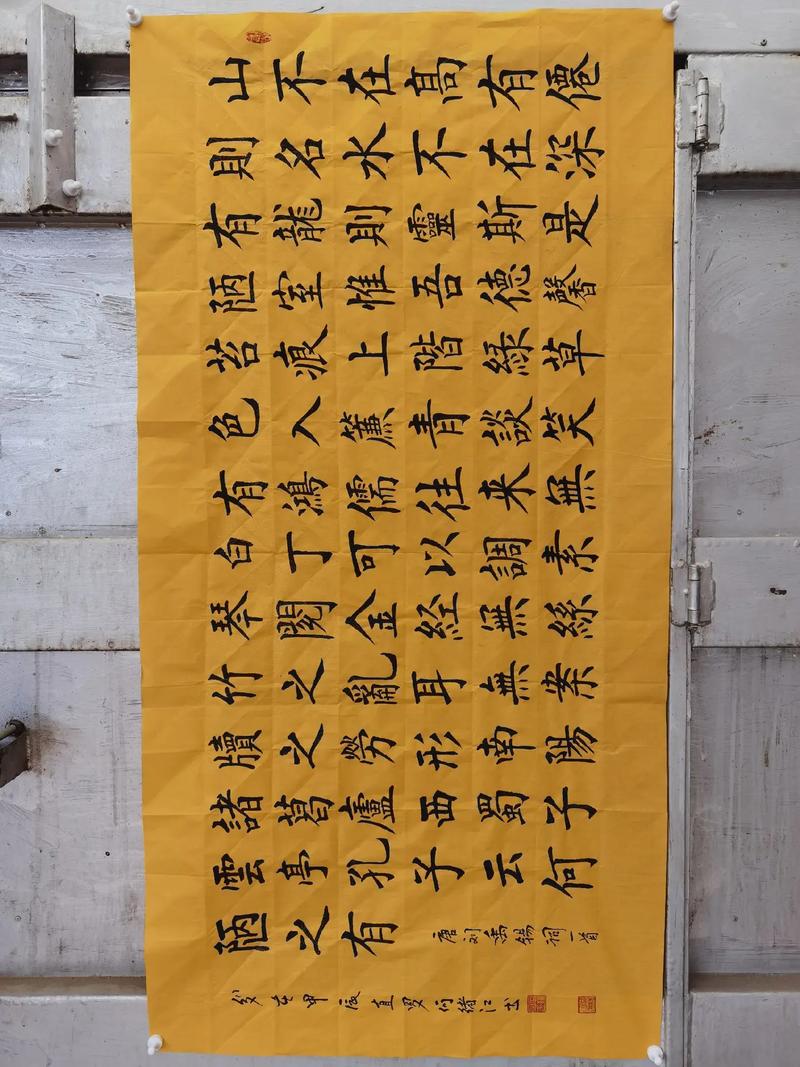 山不在高有僊
則名水不在深
有龍則靈斯是
陋室惟吾德馨
苔痕上階綠草
色入簾青談笑
有鴻儒往来無
白丁可以調素
琴閱金经無絲
竹之亂耳無案
牘之勞形南陽
諸葛廬西蜀子
雲亭孔子云何
陋之有
唐刘禹锡詞一首
岁在甲辰 夏 绪江书